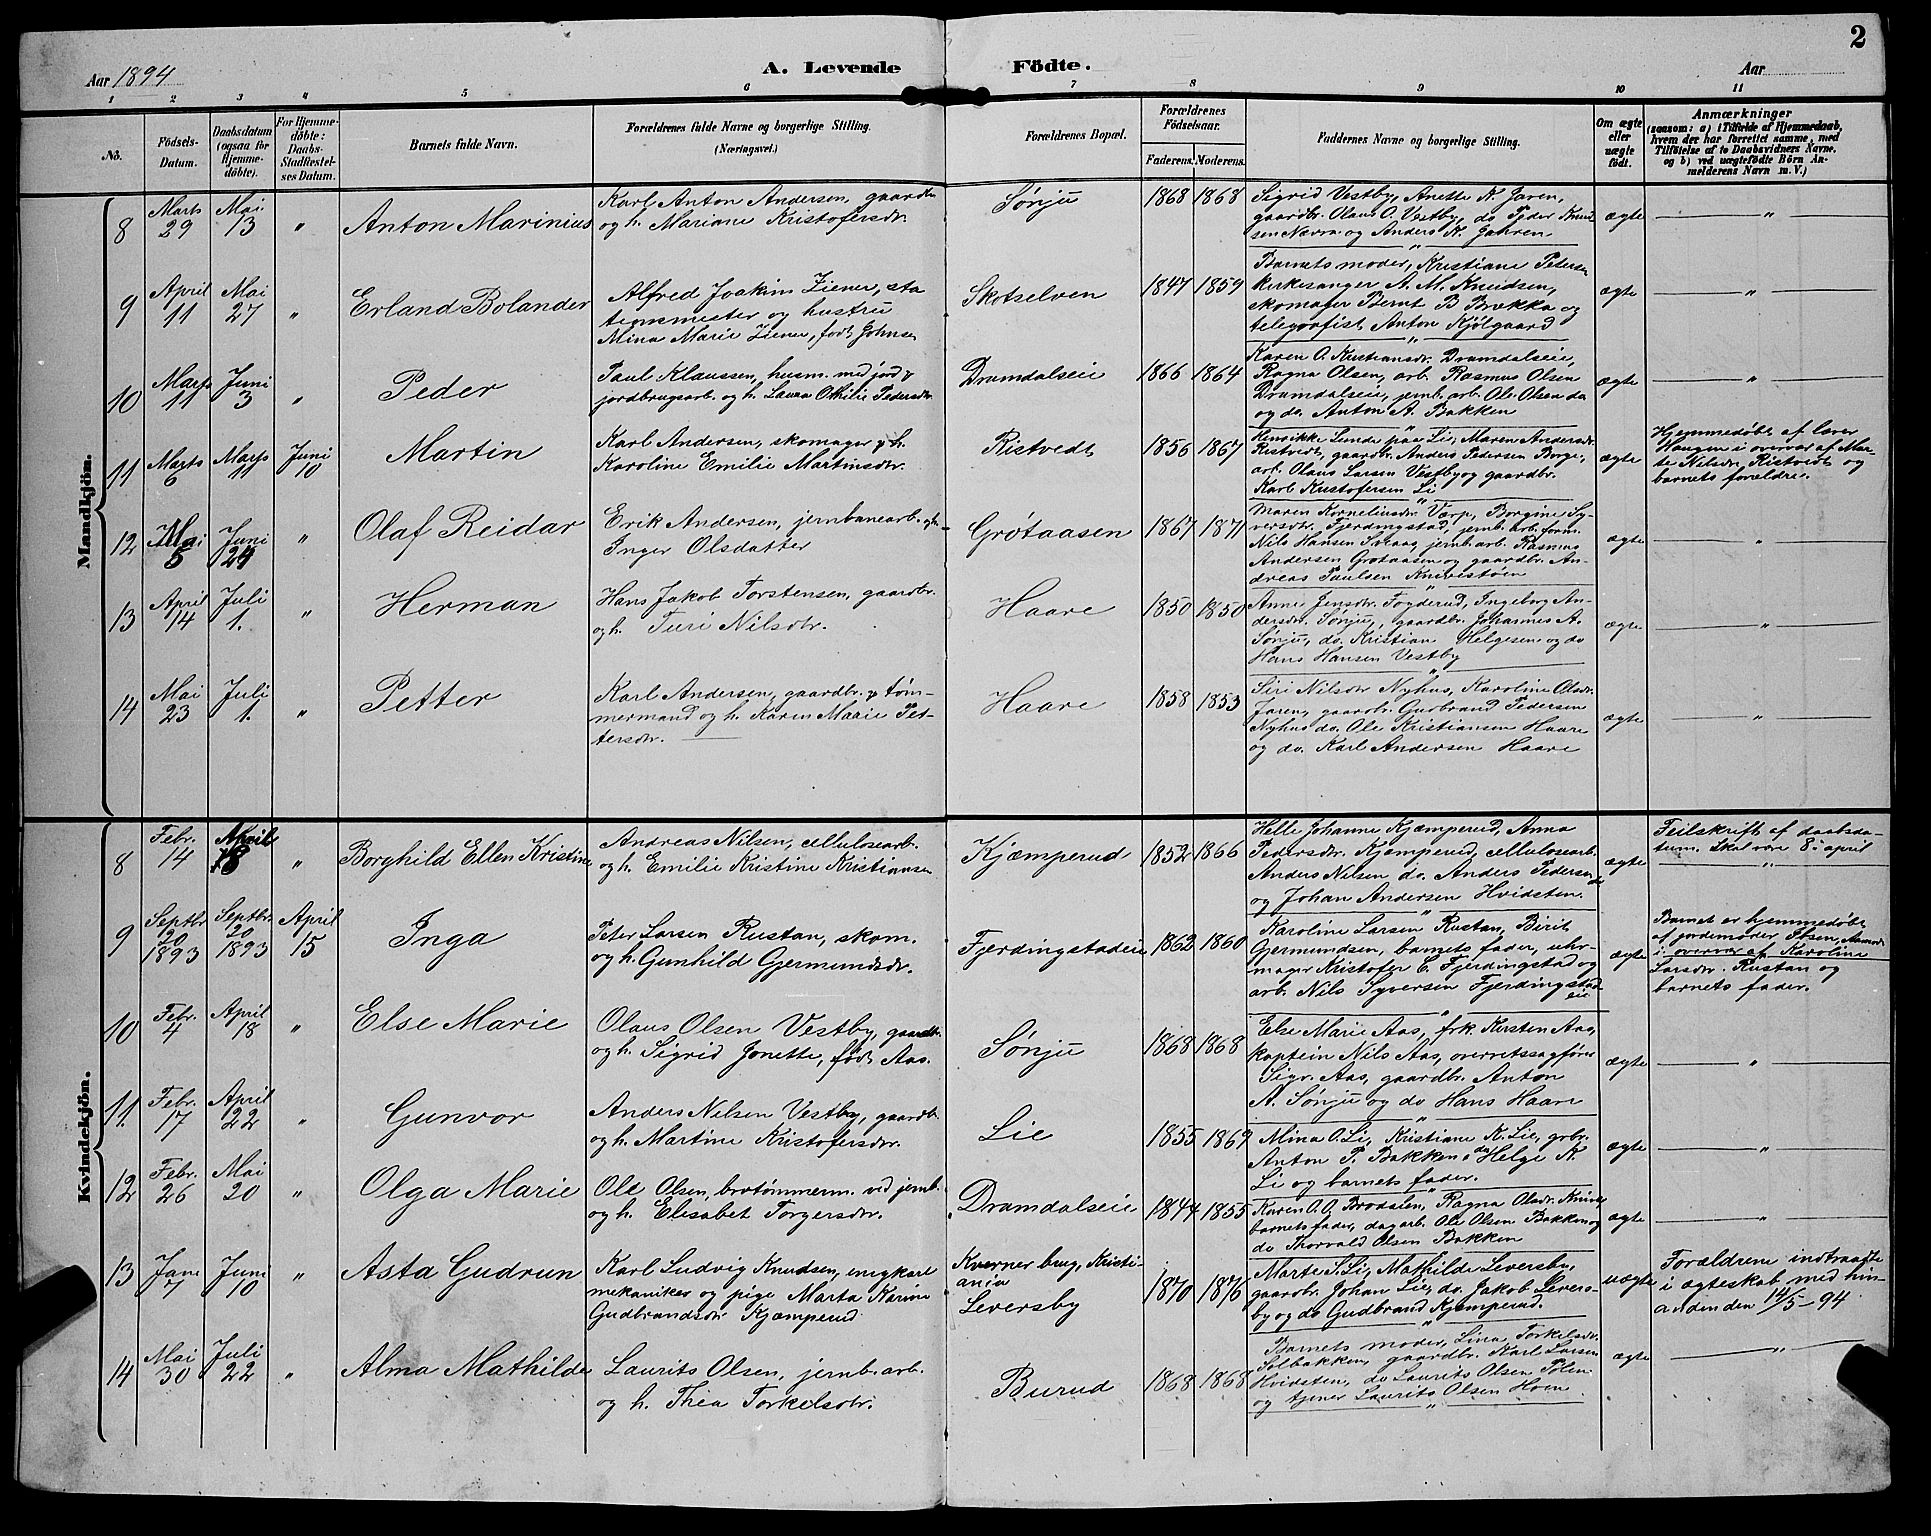 2
Aar 1894
A. Levende Födte.
Aar
1 2 3 4 5 6 7 8 9 10 11
No.
Födsels-Datum.
Daabsdatum (ogsaa for Hjemmedöbte).
For Hjemmedöbte: Daabs-Stadfæstelses Datum.
Barnets fulde Navn.
Forældrenes fulde Navne og borgerlige Stilling.
(Næringsvei.)
Forældrenes Bopæl.
Forældrenes Födselsaar.
Faderens. Moderens.
Faddernes Navne og borgerlige Stilling.
Om ægte eller uægte födt.
Anmærkninger
(saasom: a) i Tilfælde af Hjemmedaab, hvem der har forrettet samme, med Tilföielse af to Daabsvidners Navne, og b) ved uægtefödte Börn Anmelderens Navn m. V.)
Mandkjön.
8 Marts 29 Mai 13 " Anton Marinius
Karl Anton Andersen, gaardbr.
og h. Mariane Kristofersdr.
Sønju 1868 1868
Sigrid Vestby, Anette K. Jaren,
gaardbr. Olaus O. Vestby, do Peder Knud
sen Nævra og Anders K. Jahren
ægte "
9 April 11 Mai 27 " Erland Bolander
Alfred Joakim Ziener, sta
tionsmester og hustru
Mina Marie Ziener, født Johnsen
Skotselven 1847 1859
Barnets moder, Kristiane Petersen
kirkesanger A. M. Kneidsen,
skomager Bernt B Brekka og
telegrafist Anton Kjölgaard
ægte "
10 Marts 11 Juni 3 " Peder
Paul Klaussen, husm. med jord &
jordbrugsarb. og h. Laura Othilie Pedersdr.
Dramdalseie 1866 1864
Karen O. Kristiansdr. Dramdalseie,
Ragna Olsen, arb. Rasmus Olsen
Dramdalseie, jernb. arb. Ole Olsen do
og do. Anton A. Bakken
ægte "
11 Marts 6 Marts 11 Juni 10 Martin
Karl Andersen, skomager & h.
Karoline Emilie Martinsdr.
Ristvedt 1856 1867
Henrikke Lunde paa Li, Maren Andersdr.
Ristvedt, gaardbr. Anders Pedersen Borge,
arb. Olaus Larsen Vestby og gaardbr.
Karl Kristofersen Li
ægte
Hjemmedøbt af lærer
Haugen i overvær af Mar-
te Nilsdr. Ristvedt og
barnets forældre.
12 Mai 5 Juni 24 " Olaf Reidar
Erik Andersen, jernbanearb. og h.
Inger Olsdatter
Grøtaasen 1867 1871
Maren Kornelinsdr. Værp, Borgine Sy-
versdr. Fjerdingstad, jernb. arb. form.
Nils Hansen Sveaas, jernb. arb. Rasmus
Andersen Grøtaasen og gaardbr. An-
dreas Paulsen Knivestøen
ægte "
13 April 14 Juli 1. " Herman
Hans Jakob Torstensen, gaardbr.
og h. Turi Nilsdtr.
Haare 1850 1850
Anne Jensdr. Foyderud, Ingeborg An-
dersdr. Sønju, gaardbr. Johannes A.
Sønju, do. Kristian Helgesen og do
Hans Hansen Vestby
ægte "
14 Mai 23 Juli 1. " Petter
Karl Andersen, gaardbr. & tøm-
mermand og h. Karen Marie Pet-
tersdr.
Haare 1858 1853
Siri Nilsdtr Nyhus, Karoline Olsdr.
Jaren, gaardbr. Gudbrand Pedersen
Nyhus do. Ole Kristiansen Haare
og do. Karl Andersen Haare
ægte "
Kvindekjön.
8 Febr. 14 April 8 " Borghild Ellen Kristine
Andreas Nilsen, cellulosearb.
og h. Emilie Kristine Kristiansen
Kjæmperud 1852 1866
Helle Johanne Kjæmperud, Anna
Pedersdr. Kjæmperud, cellulosearb.
Anders Nilsen do. Anders Pedersen do
og Johan Andersen Hvidsten.
ægte
Feilskrift af daabsda-
tum. Skal være 8 april
9 Septbr 20 1893 Septbr. 20 1893 April 15 Inga
Peter Larsen Rustan, skom.
og h. Gunhild Gjermundsdr.
Fjerdingstadeie 1862 1860
Karoline Larsen Rustan, Birit
Gjermundsen, barnets fader, uhr-
mager Kristofer C. Fjerdingstad og
arb. Nils Syversen Fjerdingstad-
eie
ægte
Barnet er hjemmedøbt
af jordemoder Ibsen,
i overvær af Karoline
Larsdr. Rustan og
barnets fader.
10 Febr. 4 April 18 " Else Marie
Olaus Olsen Vestby, gaardbr.
og h. Sigrid Jonette, født Aas.
Sønju 1868 1868
Else Marie Aas, frk. Kirsten Aas,
kaptein Nils Aas, overretssagfører
Sigv. Aas, gaardbr. Anton
A. Sønju og do Hans Haare
ægte "
11. Febr. 17 April 22 " Gunvor
Anders Nilsen Vestby, gaardbr.
og h. Martine Kristofersdr.
Lie 1855 1869
Mina O. Li, Kristiane K. Lie, grbr.
Anton P. Bakken, do Helge K.
Li og barnets fader.
ægte "
12 Febr. 26 Mai 20 " Olga Marie
Ole Olsen, brotømmerm. ved jernb.
og h. Elisabet Torgersdr.
Dramdalseie 1844 1855
Karen O. O. Brodalen, Ragna Olsdr. Knive,
barnets fader, dagarb. Ole Olsen Bakken og
do Thorvald Olsen Bakken
ægte "
13 Jan. 7 Juni 10 " Asta Gudrun
Karl Ludvig Knudsen, ungkarl
mekaniker og pige Marta Karine
Gudbrandsdr Kjæmperud
Kværner brug, Kristi-
ania
Leversby 1870 1876
Marte S. Li, Mathilde Leversby,
gaardbr. Johan Lie, do. Jakob Levers-
by og do Gudbrand Kjæmperud.
uægte
Forældrene indtraadte
i ægteskab med hin-
anden den 14/5 - 94
14 Mai 30 Juli 22 " Alma Mathilde
Laurits Olsen, jernb. arb.
og h. Thea Torkelsdtr.
Burud 1868 1868
Barnets moder, Lina Torkelsdr.
Solbakken, gaardbr. Karl Larsen
Hvidsten, do Laurits Olsen
og tjener Laurits Olsen Hoen
ægte "